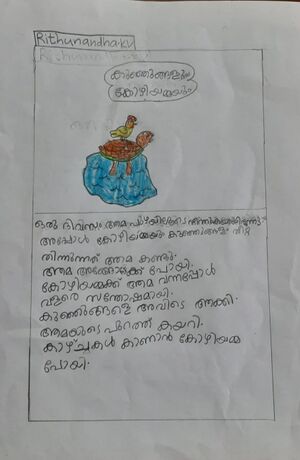 Rithunandha.k.v
കുഞ്ഞുങ്ങളും
കോഴിയമ്മയും
ഒരു ദിവസം ആമ പുഴയിലൂടെ
അപ്പോൾ കോഴിയമ്മയും കുഞ്ഞുങ്ങളും തീറ്റ
തിന്നുന്നത് ആമ കണ്ടു.
ആമ അങ്ങോട്ടേക്ക് പോയി.
കോഴിയമ്മക്ക് ആമ വന്നപ്പോൾ
വളരെ സന്തോഷമായി.
കുഞ്ഞുങ്ങളെ അവിടെ ആക്കി.
ആമയുടെ പുറത്ത് കയറി.
കാഴ്ച്ചകൾ കാണാൻ കോഴിയമ്മ
പോയി.